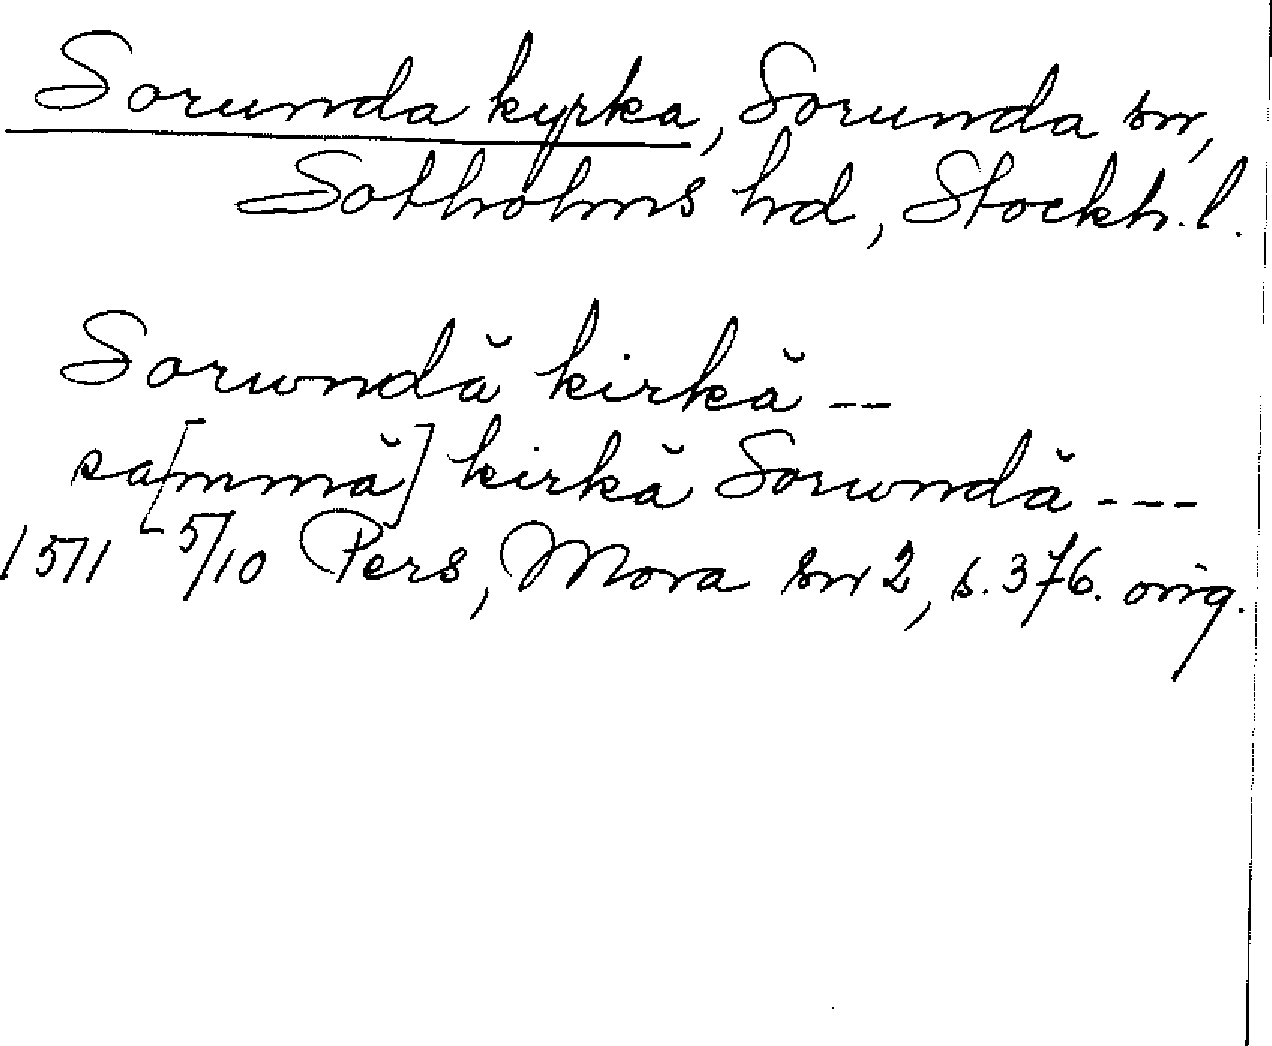 Sorunda kyrka, Sorunda sn,
Sotholms hd, Stockh. l.
Sorwndă kirkă --
sa[mmă] kirkă Sorwndă ---
1571 5/10 Pers, Mora sn 2, s. 376. orig.